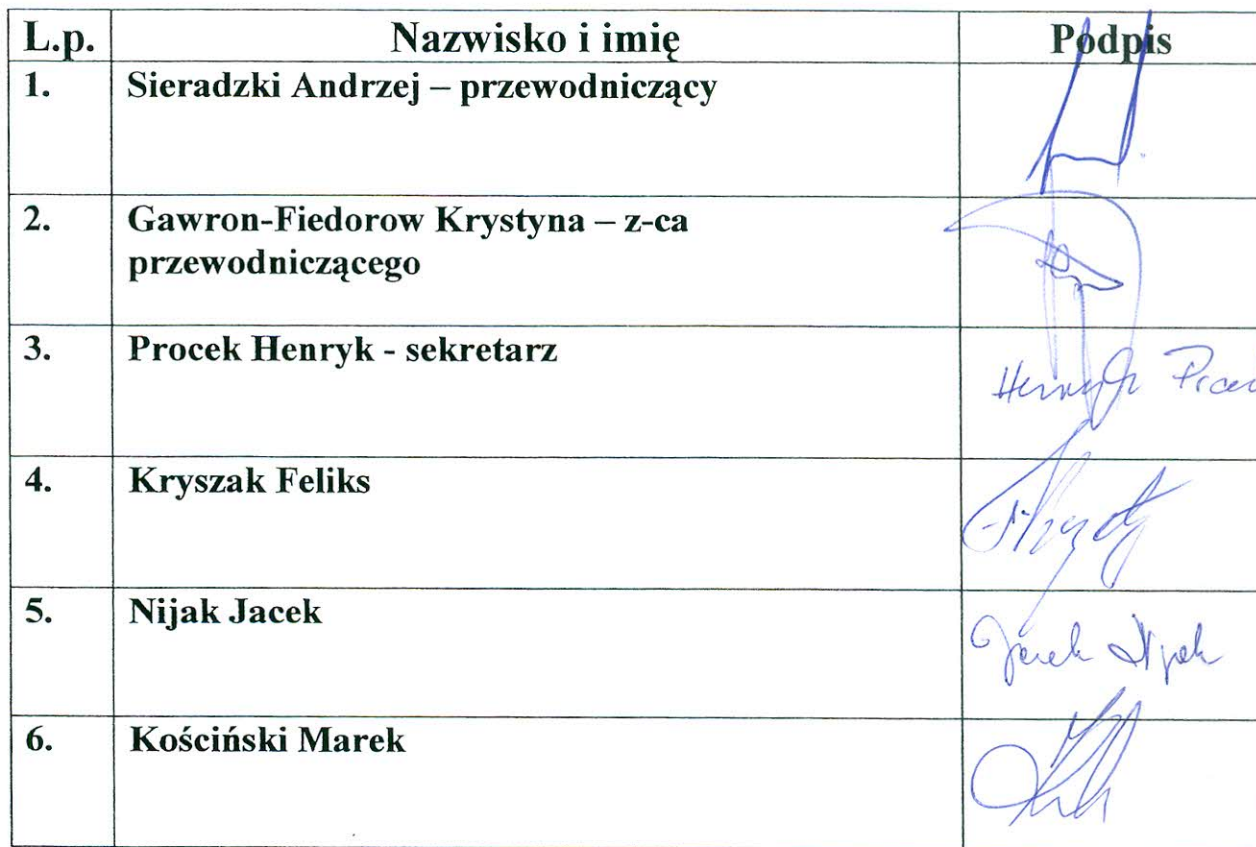 L.p. Nazwisko i imię Podpis
1. Sieradzki Andrzej – przewodniczący
2. Gawron-Fiedorow Krystyna – z-ca
przewodniczącego
3. Procek Henryk - sekretarz
Henryk
4. Kryszak Feliks
5. Nijak Jacek
Jacek Nijak
6. Kościński Marek